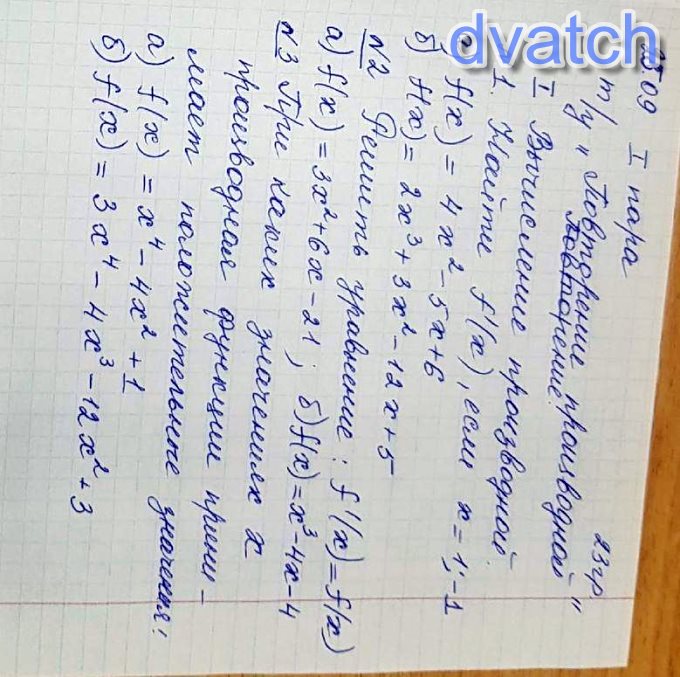 dvatch
09 I пара 23гр.
т/у "Повторение производной"
I Вычисление производной.
1. Найти f'(x), если x = 1; -1
f(x) = 4x² - 5x + 6
б) f(x) = 2x³ + 3x² - 12x + 5
N2 Решить уравнение: f'(x) = f(x)
а) f(x) = 3x² + 6x - 21; б) f(x) = x³ - 4x - 4
N3 При каких значениях x
производная функции прини-
мает положительные значения:
а) f(x) = x⁴ - 4x² + 1
б) f(x) = 3x⁴ - 4x³ - 12x² + 3